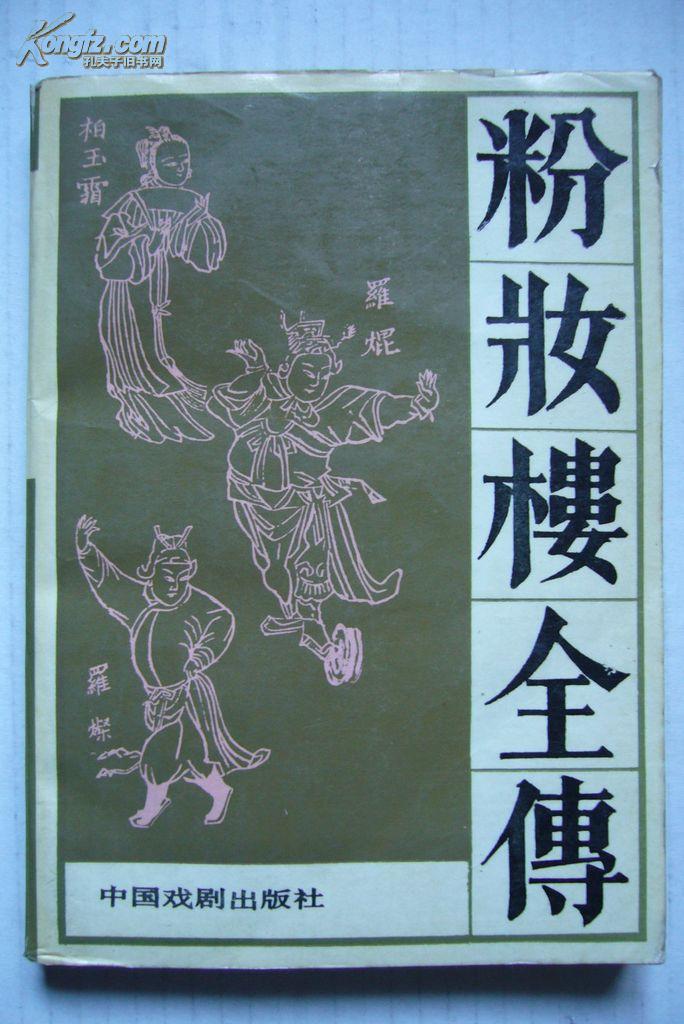 Kongfz.com
孔夫子旧书网
粉妝樓全傳
柏玉霜
羅焜
羅燦
中国戏剧出版社